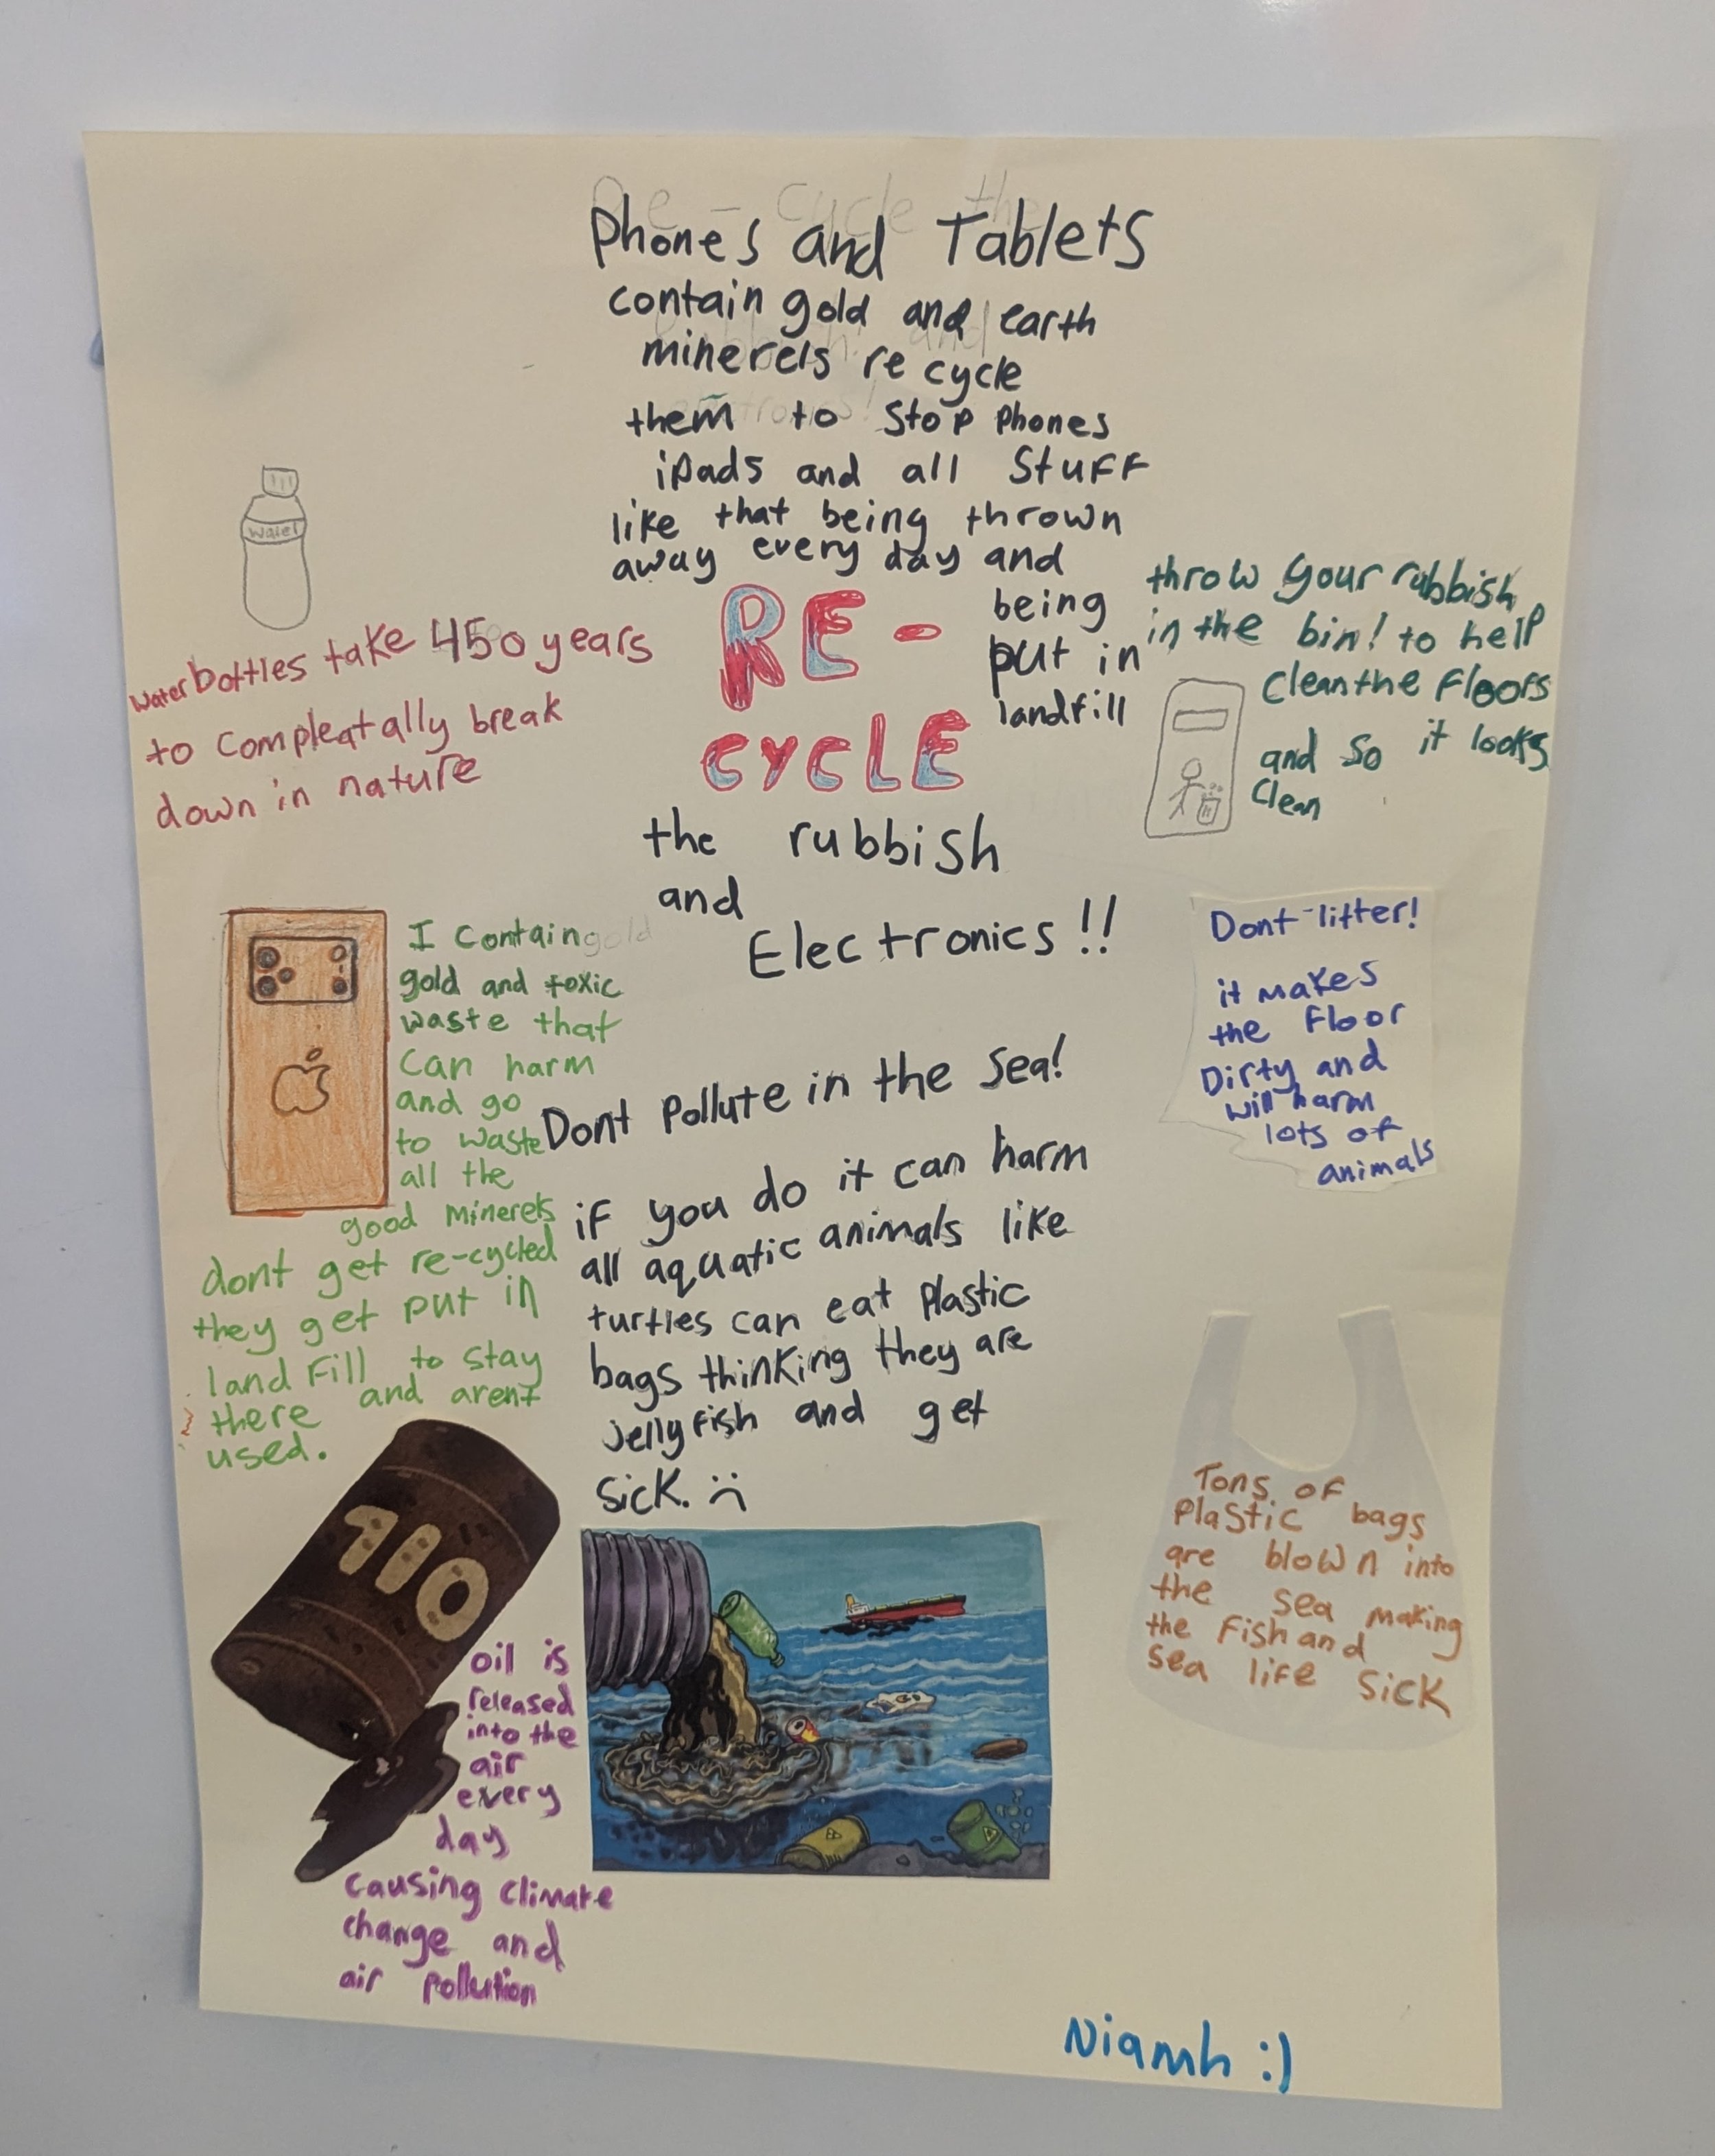 Phones and Tablets
contain gold and earth
minerels re cycle
them to stop phones
ipads and all stuff
like that being thrown
away every day and
being
put in
landfill
RE-
CYCLE
the rubbish
and
Electronics!!
water
water bottles take 450 years
to compleatally break
down in nature
throw your rubbish
in the bin! to help
clean the floors
and so it looks
clean
I contain gold
gold and toxic
waste that
can harm
and go
to waste
all the
good minerels
dont get re-cycled
they get put in
land fill to stay
there and arent
used.
Dont litter!
it makes
the floor
Dirty and
will harm
lots of
animals
Dont pollute in the sea!
if you do it can harm
all aquatic animals like
turtles can eat plastic
bags thinking they are
jellyfish and get
sick. :(
710
oil is
released
into the
air
every
day
causing climate
change and
air pollution
Tons of
plastic bags
are blown into
the sea making
the fish and
sea life sick
Niamh :)